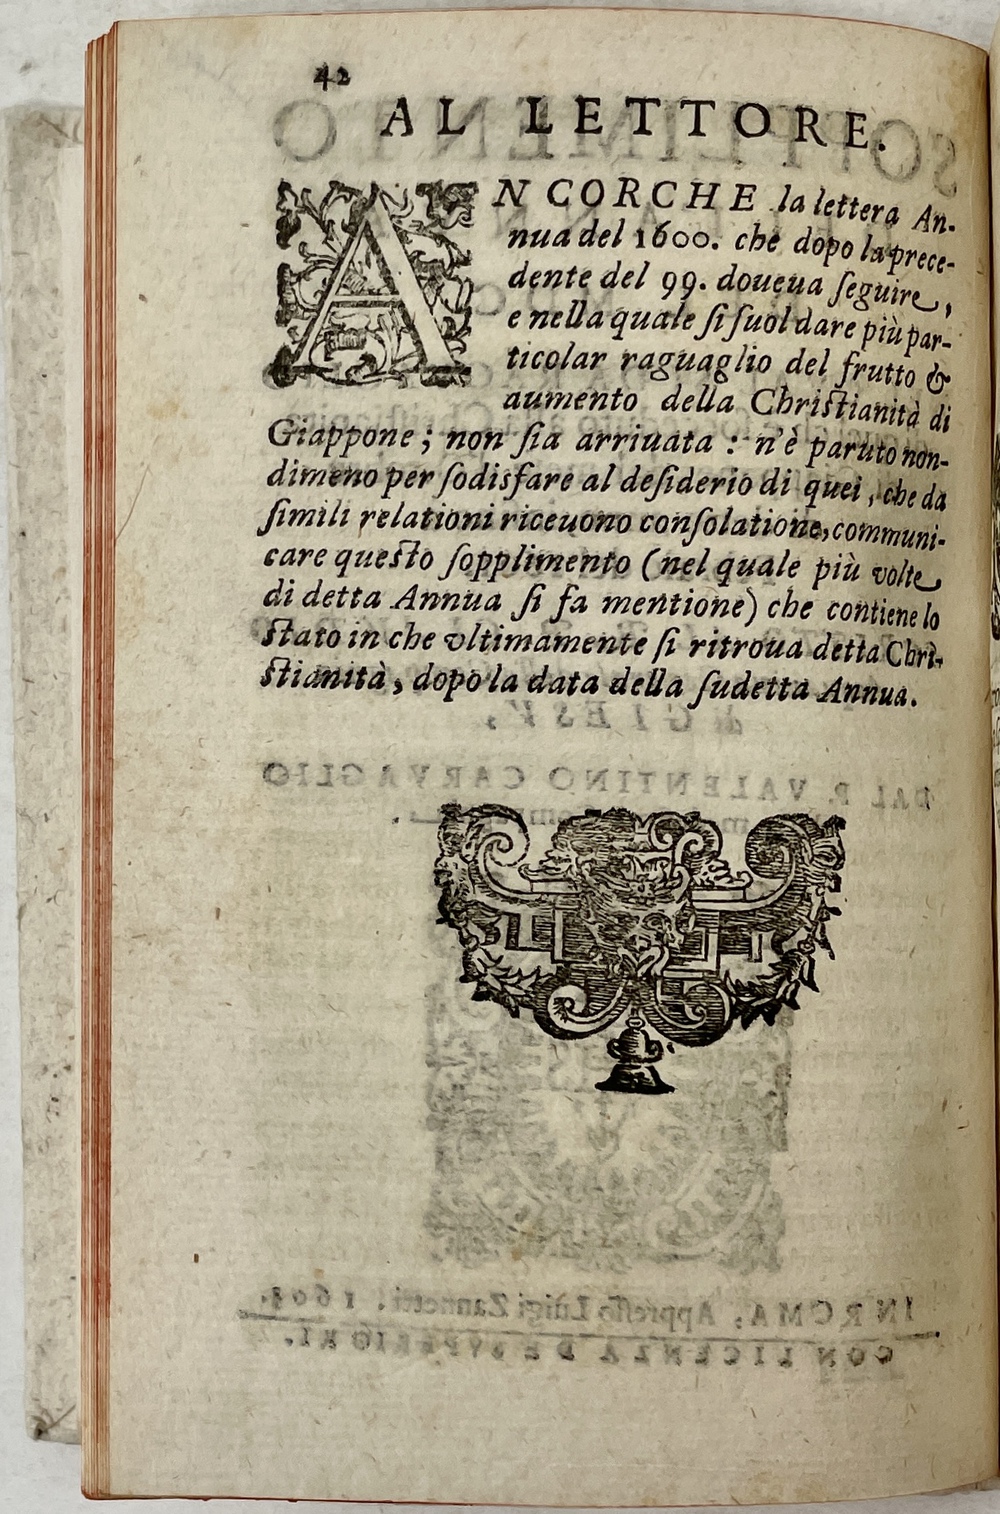 42
AL LETTORE.
ANCORCHE la lettera An-
nua del 1600. che dopo la prece-
dente del 99. doueua ſeguire,
e nella quale ſi ſuol dare più par-
ticolar raguaglio del frutto &
aumento della Chriſtianità di
Giappone; non ſia arriuata: n'è paruto non-
dimeno per ſodisfare al deſiderio di quei, che da
ſimili relationi riceuono conſolatione, communi-
care queſto ſopplimento (nel quale più volte
di detta Annua ſi fa mentione) che contiene lo
ſtato in che vltimamente ſi ritroua detta Chri-
ſtianità, dopo la data della ſudetta Annua.